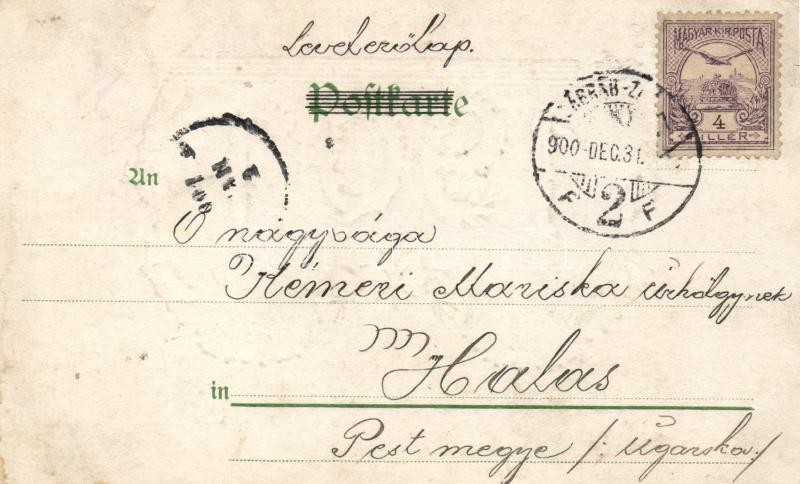 Levelezőlap.
Postkarte
MAGYAR KIR. POSTA
4
FILLER
ZÁGRÁB-ZAGREB
900-DEC.31.
F 2 F
An
Ő nagysága
Kémeri Mariska úrhölgynek
in
M Halas
Pest megye /: Ugarska :/